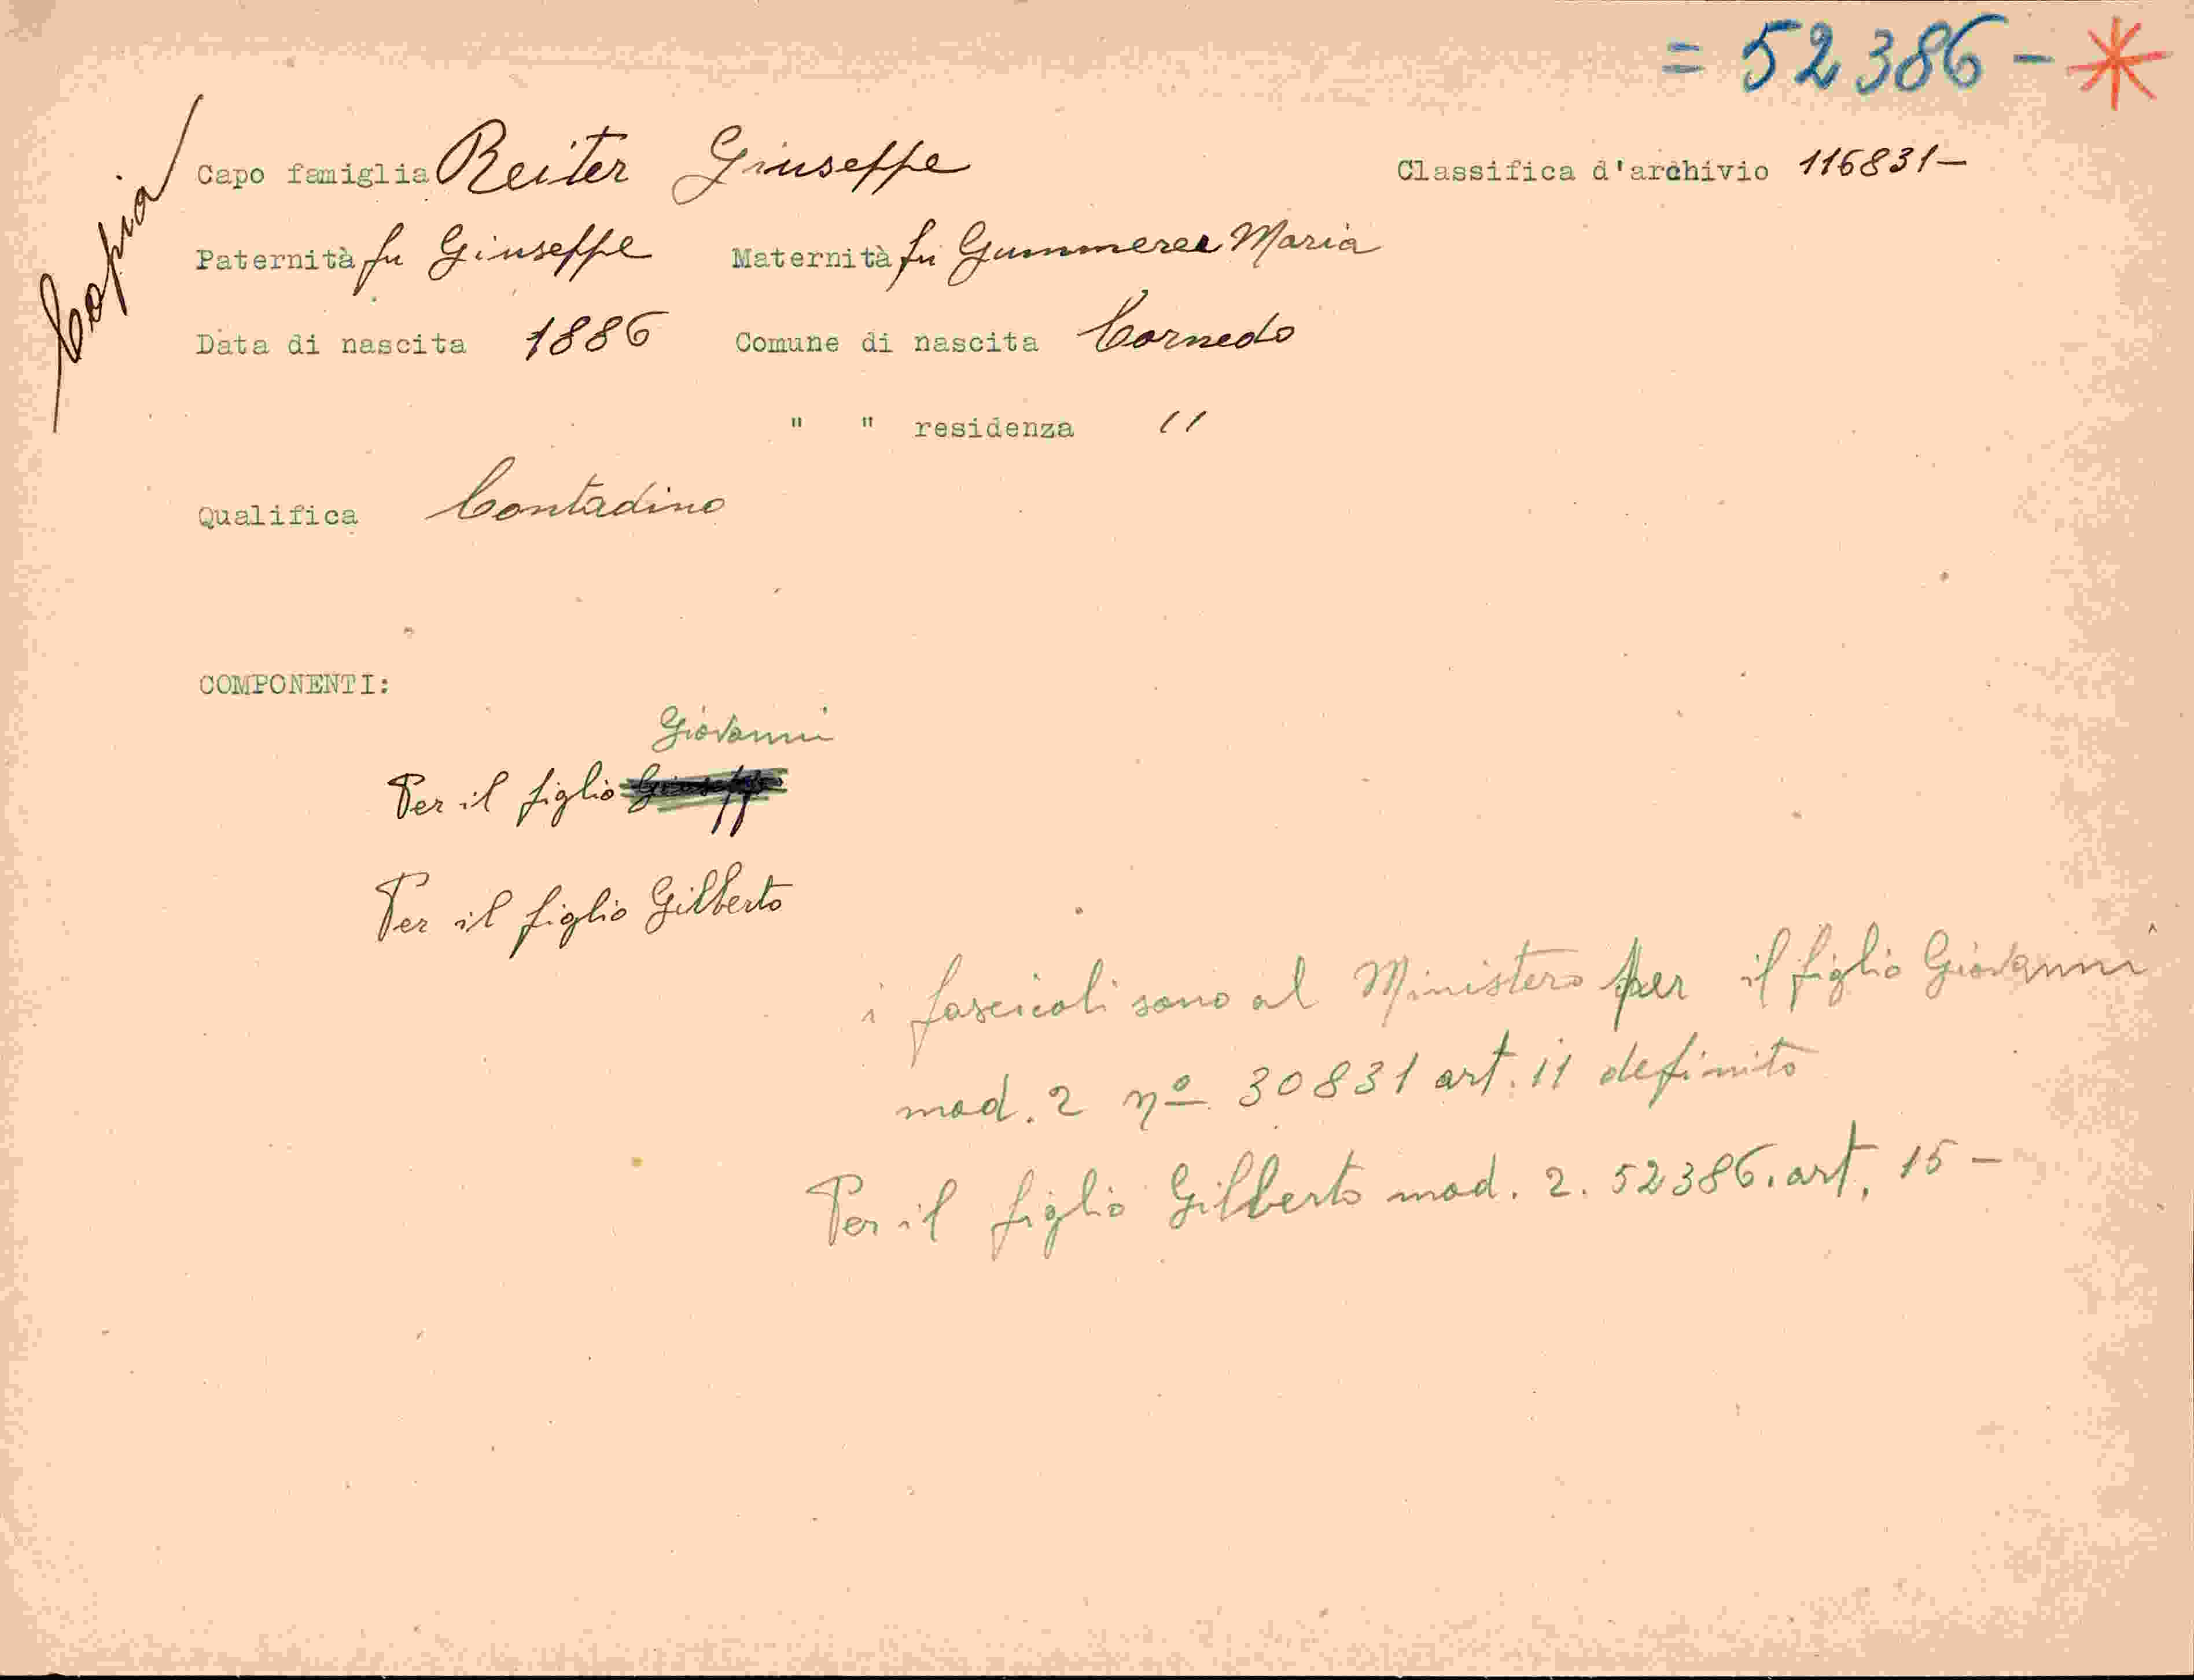 = 52386 - *
Copia
Capo famiglia Reiter Giuseppe Classifica d'archivio 116831-
Paternità fu Giuseppe Maternità fu Gummerer Maria
Data di nascita 1886 Comune di nascita Cornedo
" " residenza "
Qualifica Contadino
COMPONENTI:
Giovanni
Per il figlio Giuseppe
Per il figlio Gilberto
i fascicoli sono al Ministero per il figlio Giovanni
mod. 2 nº 30831 art. 11 definito
Per il figlio Gilberto mod. 2. 52386. art. 15 -